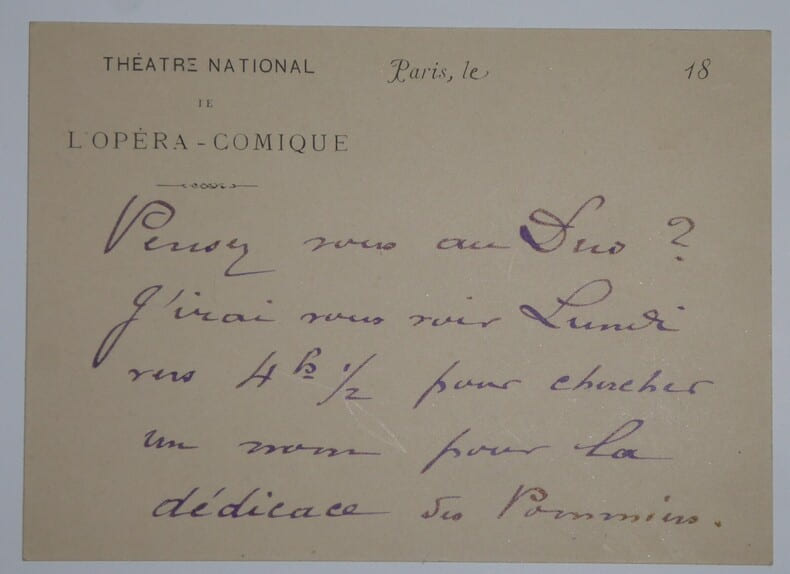 THÉATRE NATIONAL
DE
L'OPÉRA-COMIQUE
Paris, le 18
Pensez vous au Duo ?
J'irai vous voir Lundi
vers 4 h 1/2 pour chercher
un nom pour la
dédicace des Pommiers.